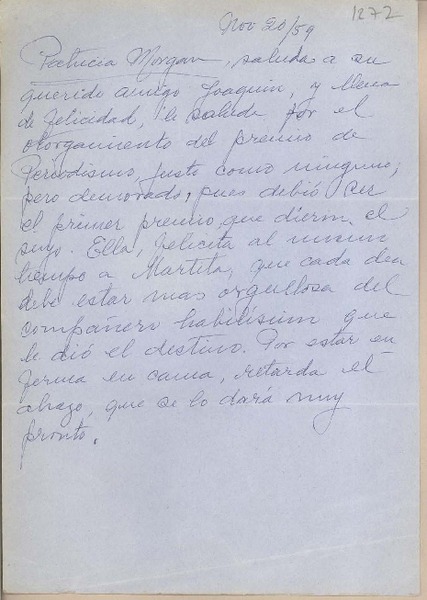 1272
Nov 20/59
Patricia Morgan, saluda a su
querido amigo Joaquin, y llena
de felicidad, le saluda por el
otorgamiento del premio de
Periodismo, justo como ninguno;
pero demorado, pues debió ser
el primer premio que dieron, el
suyo. Ella, felicita al mismo
tiempo a Martita, que cada dia
debe estar mas orgullosa del
compañero habilisimo que
le dió el destino. Por estar en
ferma en cama, retarda el
abrazo, que se lo dará muy
pronto.